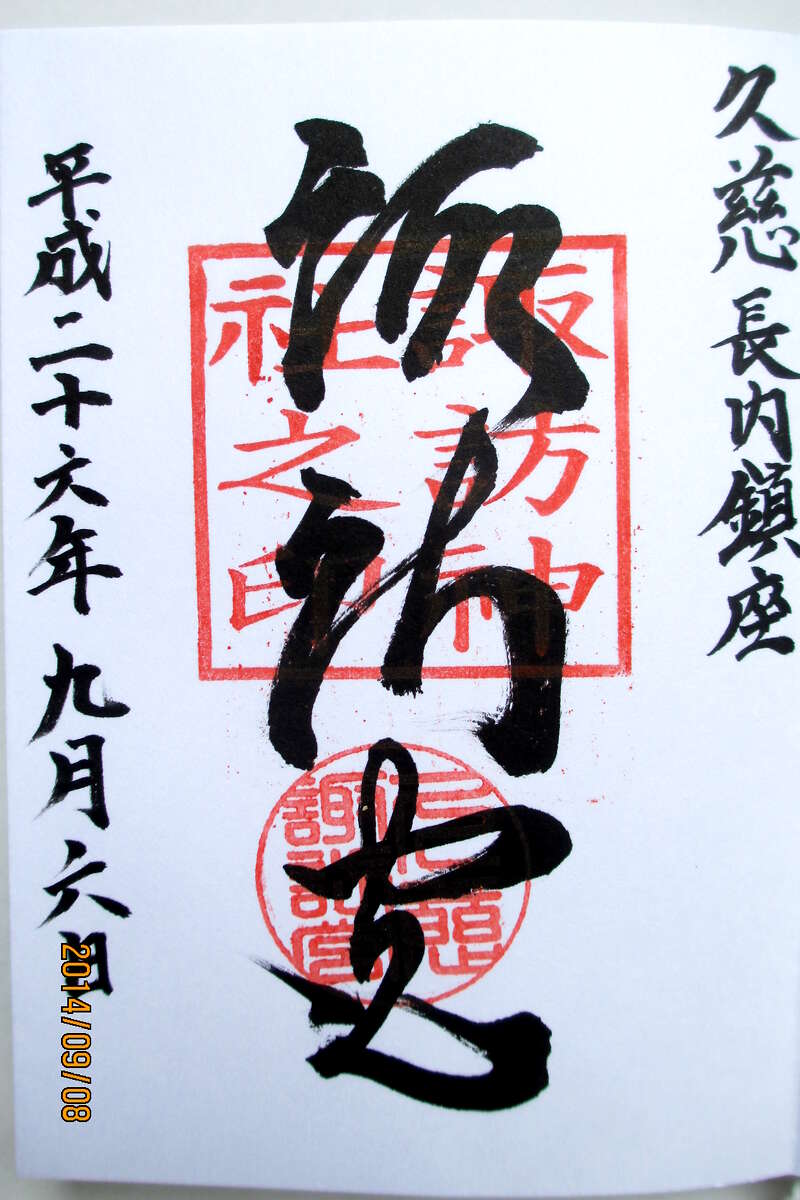 久慈長内鎮座
諏訪
諏訪神
社之印
平成二十六年九月六日
2014/09/08